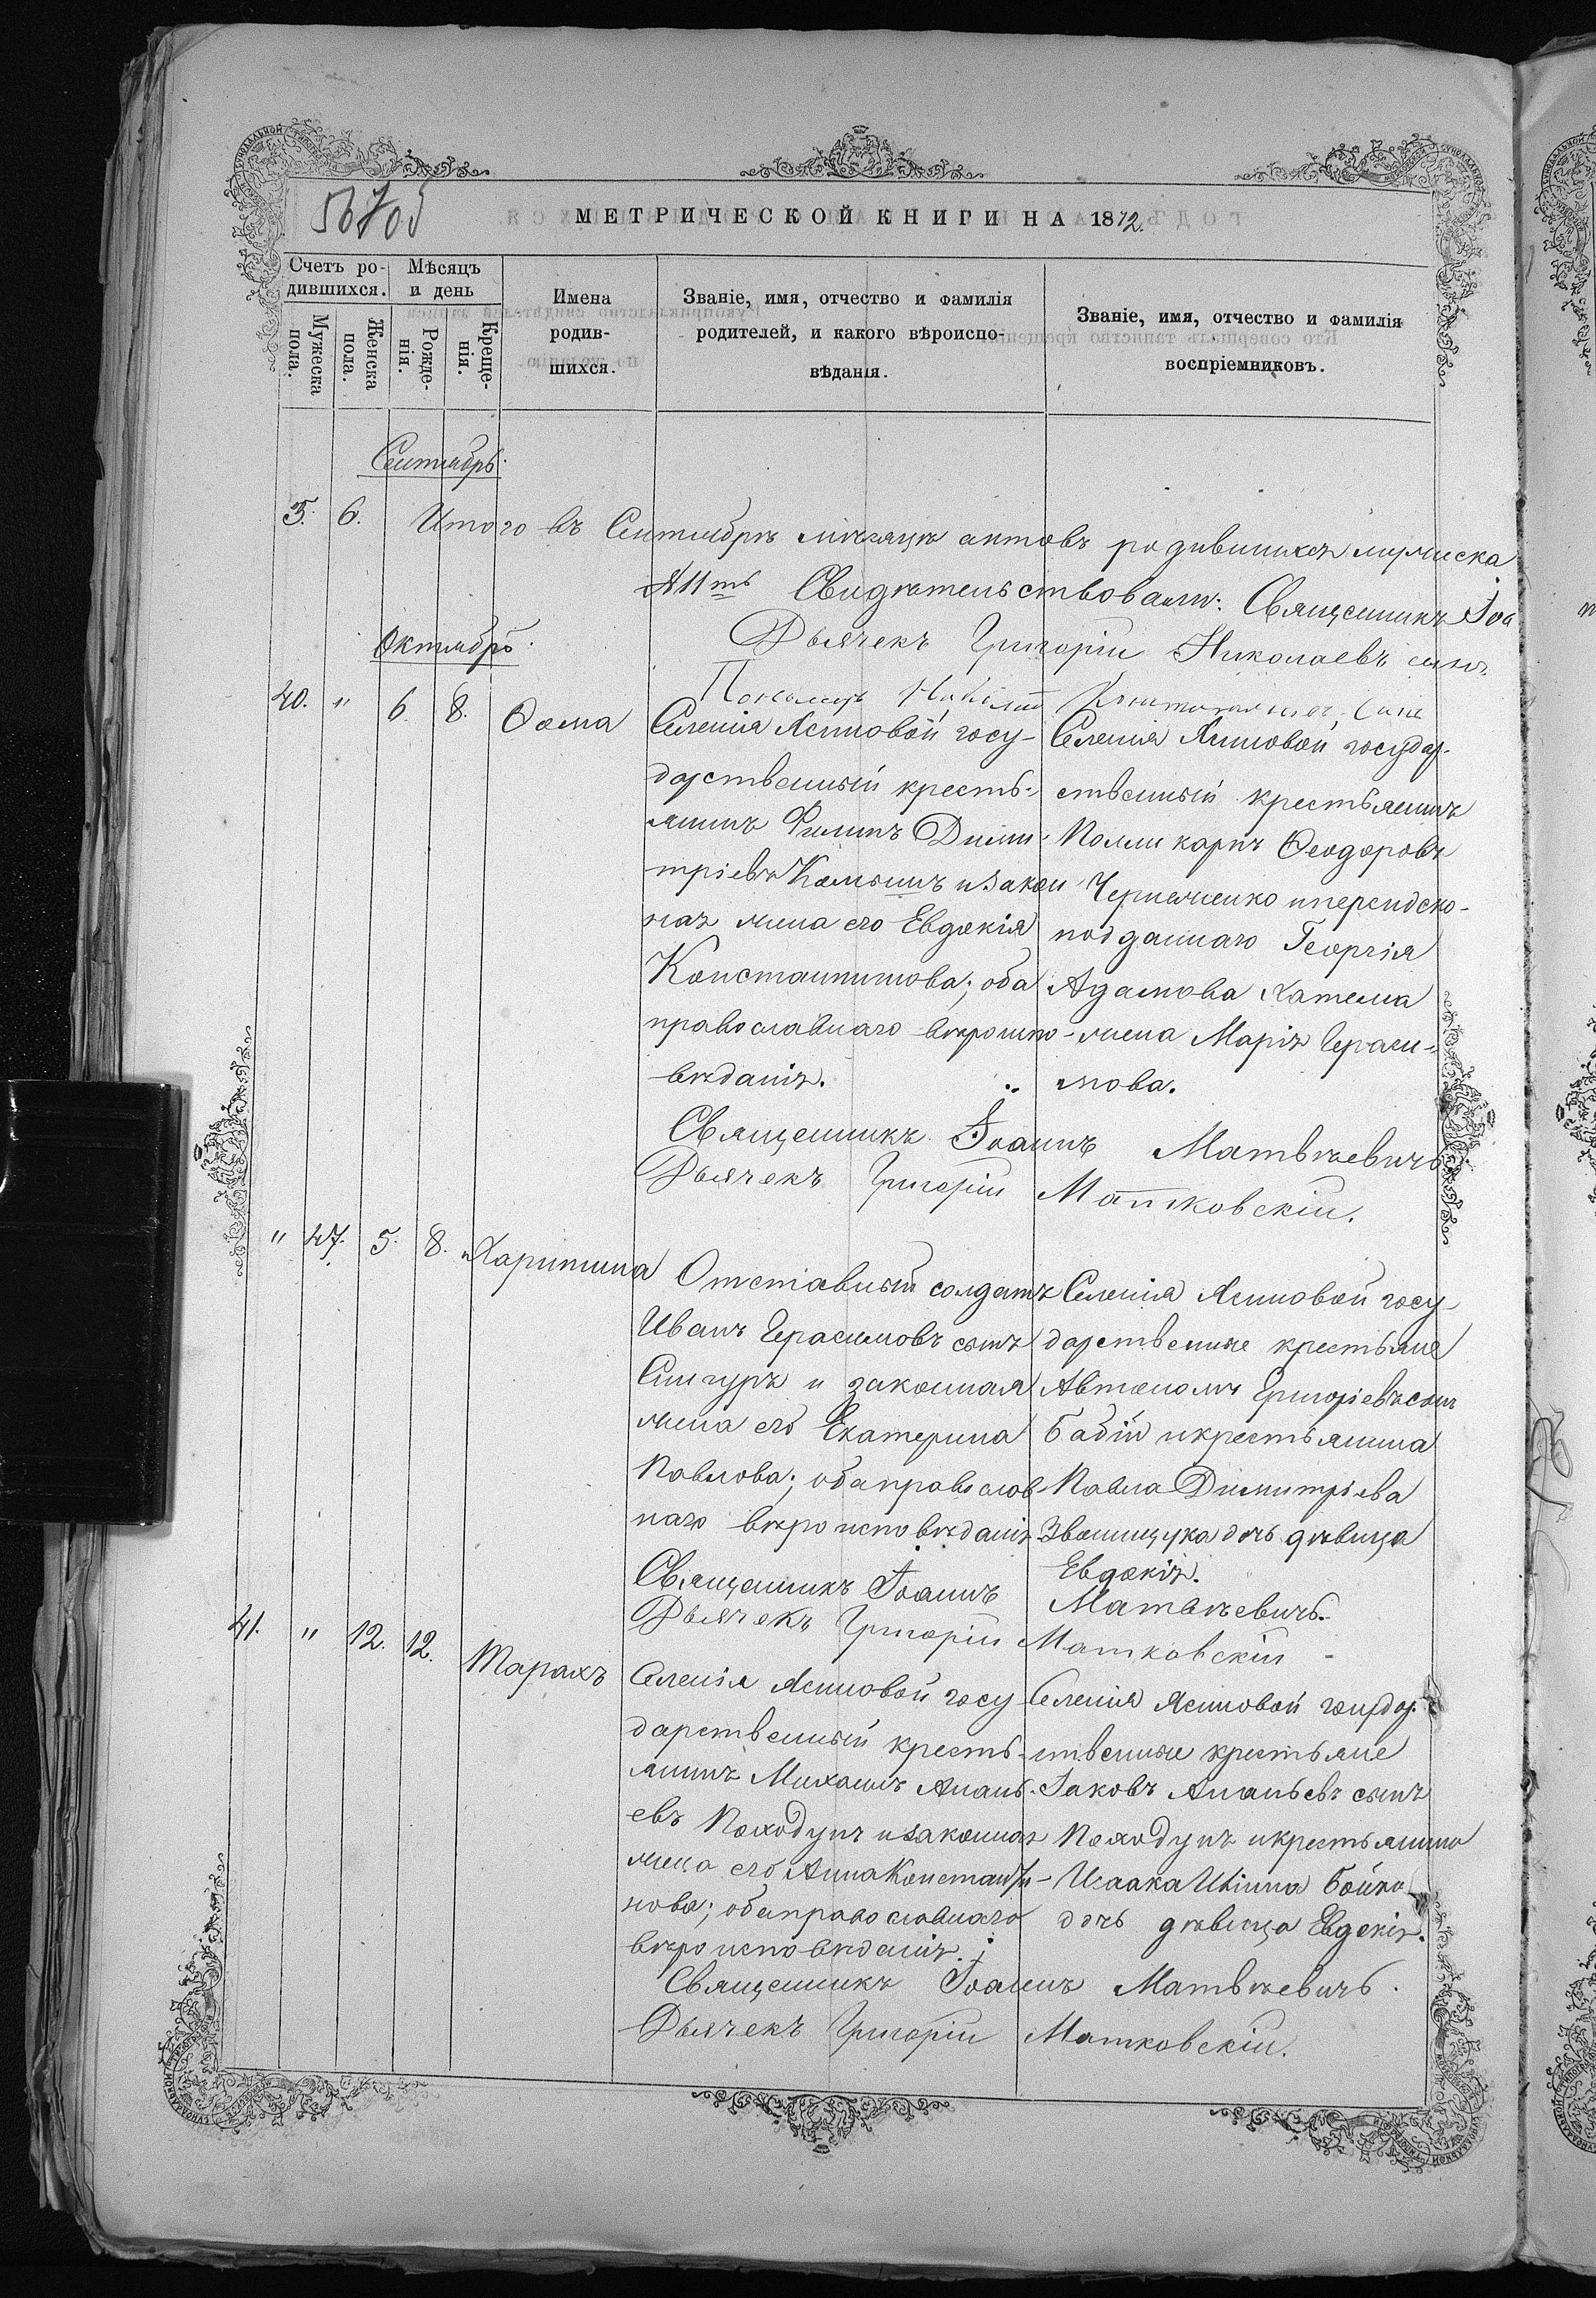 МЕТРИЧЕСКОЙ КНИГИ НА 1872.
Счетъ ро-
дившихся.
Мѣсяцъ
и день
Мужеска
пола.
Женска
пола.
Рожде-
нія.
Креще-
нія.
Имена
родив-
шихся.
Званіе, имя, отчество и фамилія
родителей, и какого вѣроиспо-
вѣданія.
Званіе, имя, отчество и фамилія
воспріемниковъ.
Сентябрь.
5. 6. Итого въ Сентябрѣ мѣсяцѣ актовъ родившихся мужеска
11ть Свидѣтельствовали: Священникъ Іоа
Дьячекъ Григорій Николаевъ сынъ
Октябрь.
40. " 6. 8. Ѳома
Селенія Ясиновой госу-
дарственный кресть-
янинъ Филипъ Дими-
тріевъ Камышъ и закон
ная жена его Евдокія
Константинова; оба
православнаго вѣроиспо-
вѣданія.
Селенія Ясиновой государ-
ственный крестьянинъ
Поликарпъ Ѳеодоровъ
Черненко и персидско-
подданнаго Георгія
Адамова Хатема
жена Марія Гераси-
мова.
Священникъ Іоаннъ Матвѣевичъ.
Дьячекъ Григорій Матковскій.
" 47. 5. 8. Харитина
Отставный солдатъ
Иванъ Герасимовъ сынъ
Снигуръ и законная
жена его Екатерина
Павлова; оба православ
наго вѣроисповѣданія
Селенія Ясиновой госу-
дарственные крестьяне
Автономъ Григорьевъ сынъ
Бабій и крестьянина
Павла Димитріева
Звонищука дочь дѣвица
Евдокія.
Священникъ Іоаннъ Матвѣевичъ.
Дьячекъ Григорій Матковскій
41. " 12. 12. Тарахъ
Селенія Ясиновой госу-
дарственный кресть-
янинъ Михаилъ Анань-
евъ Походунъ и законная
жена его Анна Констант-
нова; оба православнаго
вѣроисповѣданія.
Селенія Ясиновой государ-
ственные крестьяне
Іаковъ Ананьевъ сынъ
Походунъ и крестьянина
Исаака Бойко
дочь дѣвица Евдокія.
Священникъ Іоаннъ Матвѣевичъ.
Дьячекъ Григорій Матковскій.